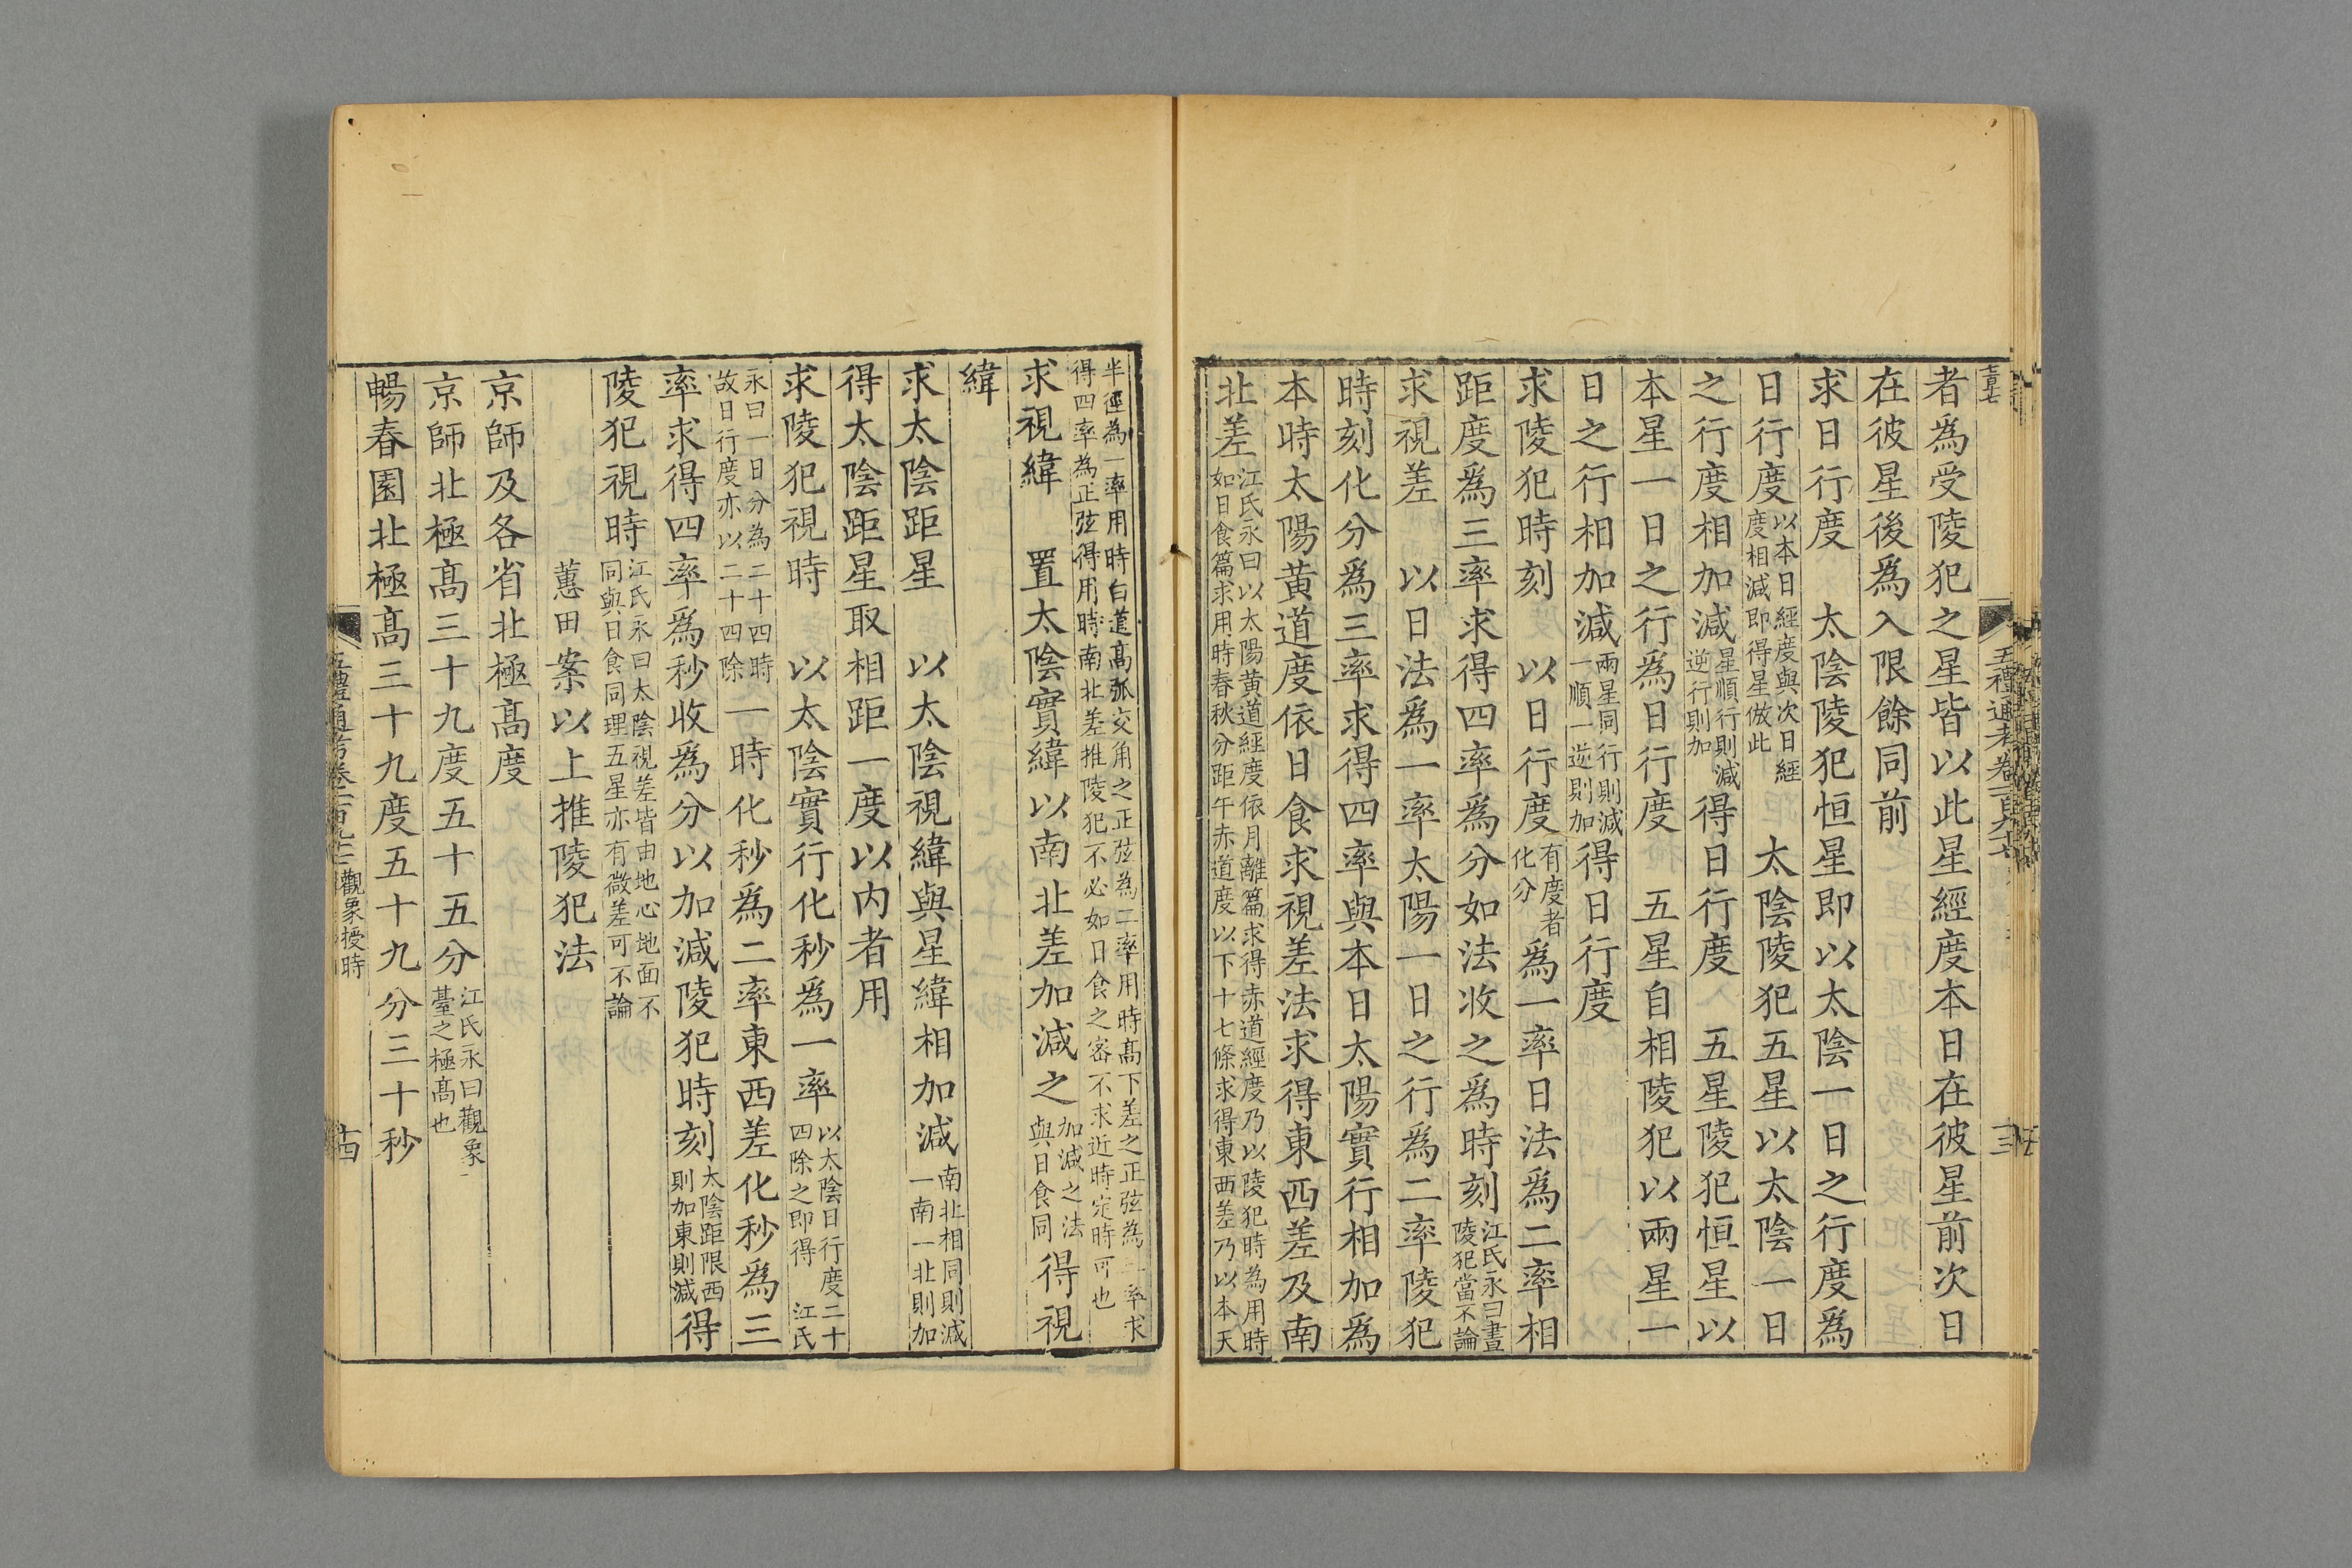 者爲受陵犯之星皆以此星經度本日在彼星前次日
在彼星後爲入限餘同前
求日行度　太陰陵犯恒星即以太陰一日之行度爲
日行度以本日經度與次日經度相減即得星倣此　太陰陵犯五星以太陰一日
之行度相加減星順行則減逆行則加得日行度　五星陵犯恒星以
本星一日之行爲日行度　五星自相陵犯以兩星一
日之行相加減兩星同行則減一順一逆則加得日行度
求陵犯時刻　以日行度有度者化分爲一率日法爲二率相
距度爲三率求得四率爲分如法收之爲時刻江氏永曰晝陵犯當不論
求視差　以日法爲一率太陽一日之行爲二率陵犯
時刻化分爲三率求得四率與本日太陽實行相加爲
本時太陽黃道度依日食求視差法求得東西差及南
北差江氏永曰以太陽黃道經度依月離篇求得赤道經度乃以陵犯時為用時如日食篇求用時春秋分距午赤道度以下十七條求得東西差乃以本天
半徑為一率用時白道高弧交角之正弦為二率用時高下差之正弦為三率求得四率為正弦得用時南北差推陵犯不必如日食之密不求近時定時可也
求視緯　置太陰實緯以南北差加減之加減之法與日食同得視
緯
求太陰距星　以太陰視緯與星緯相加減南北相同則減一南一北則加
得太陰距星取相距一度以內者用
求陵犯視時　以太陰實行化秒爲一率以太陰日行度二十四除之即得　江氏
永曰一日分為二十四時故日行度亦以二十四除一時化秒爲二率東西差化秒爲三
率求得四率爲秒收爲分以加減陵犯時刻太陰距限西則加東則減得
陵犯視時江氏永曰太陰視差皆由地心地面不同與日食同理五星亦有微差可不論
蕙田案以上推陵犯法
京師及各省北極高度
京師北極高三十九度五十五分江氏永曰觀象臺之極高也
暢春園北極高三十九度五十九分三十秒
觀象授時